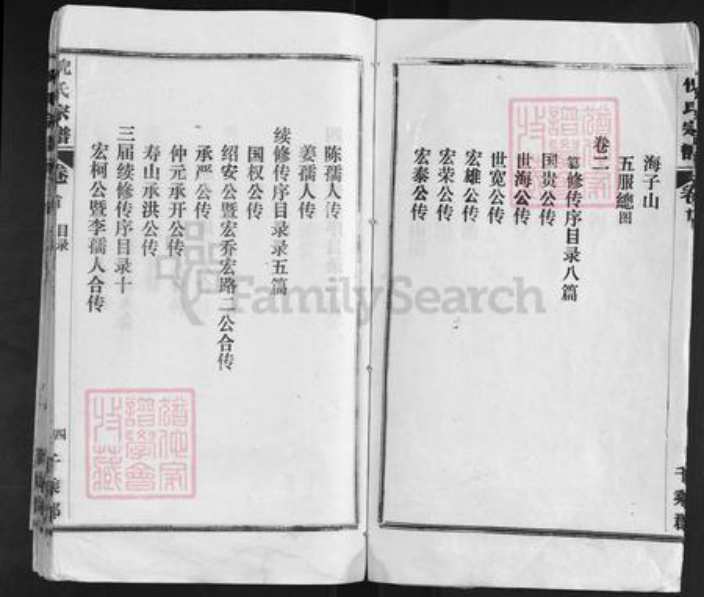 海子山
五服總图
卷二
篡修传序目录八篇
国贵公传
世海公传
世宽公传
宏雄公传
宏荣公传
宏泰公传
陈孺人传
姜孺人传
续修传序目录录五篇
国权公传
绍安公暨宏乔宏路二公合传
承严公传
仲元承开公传
寿山承洪公传
三届续修传序目录十
宏柯公暨李孺人合传
倪氏宗譜
卷首
目录
四
千乘郡
千乘郡
FamilySearch